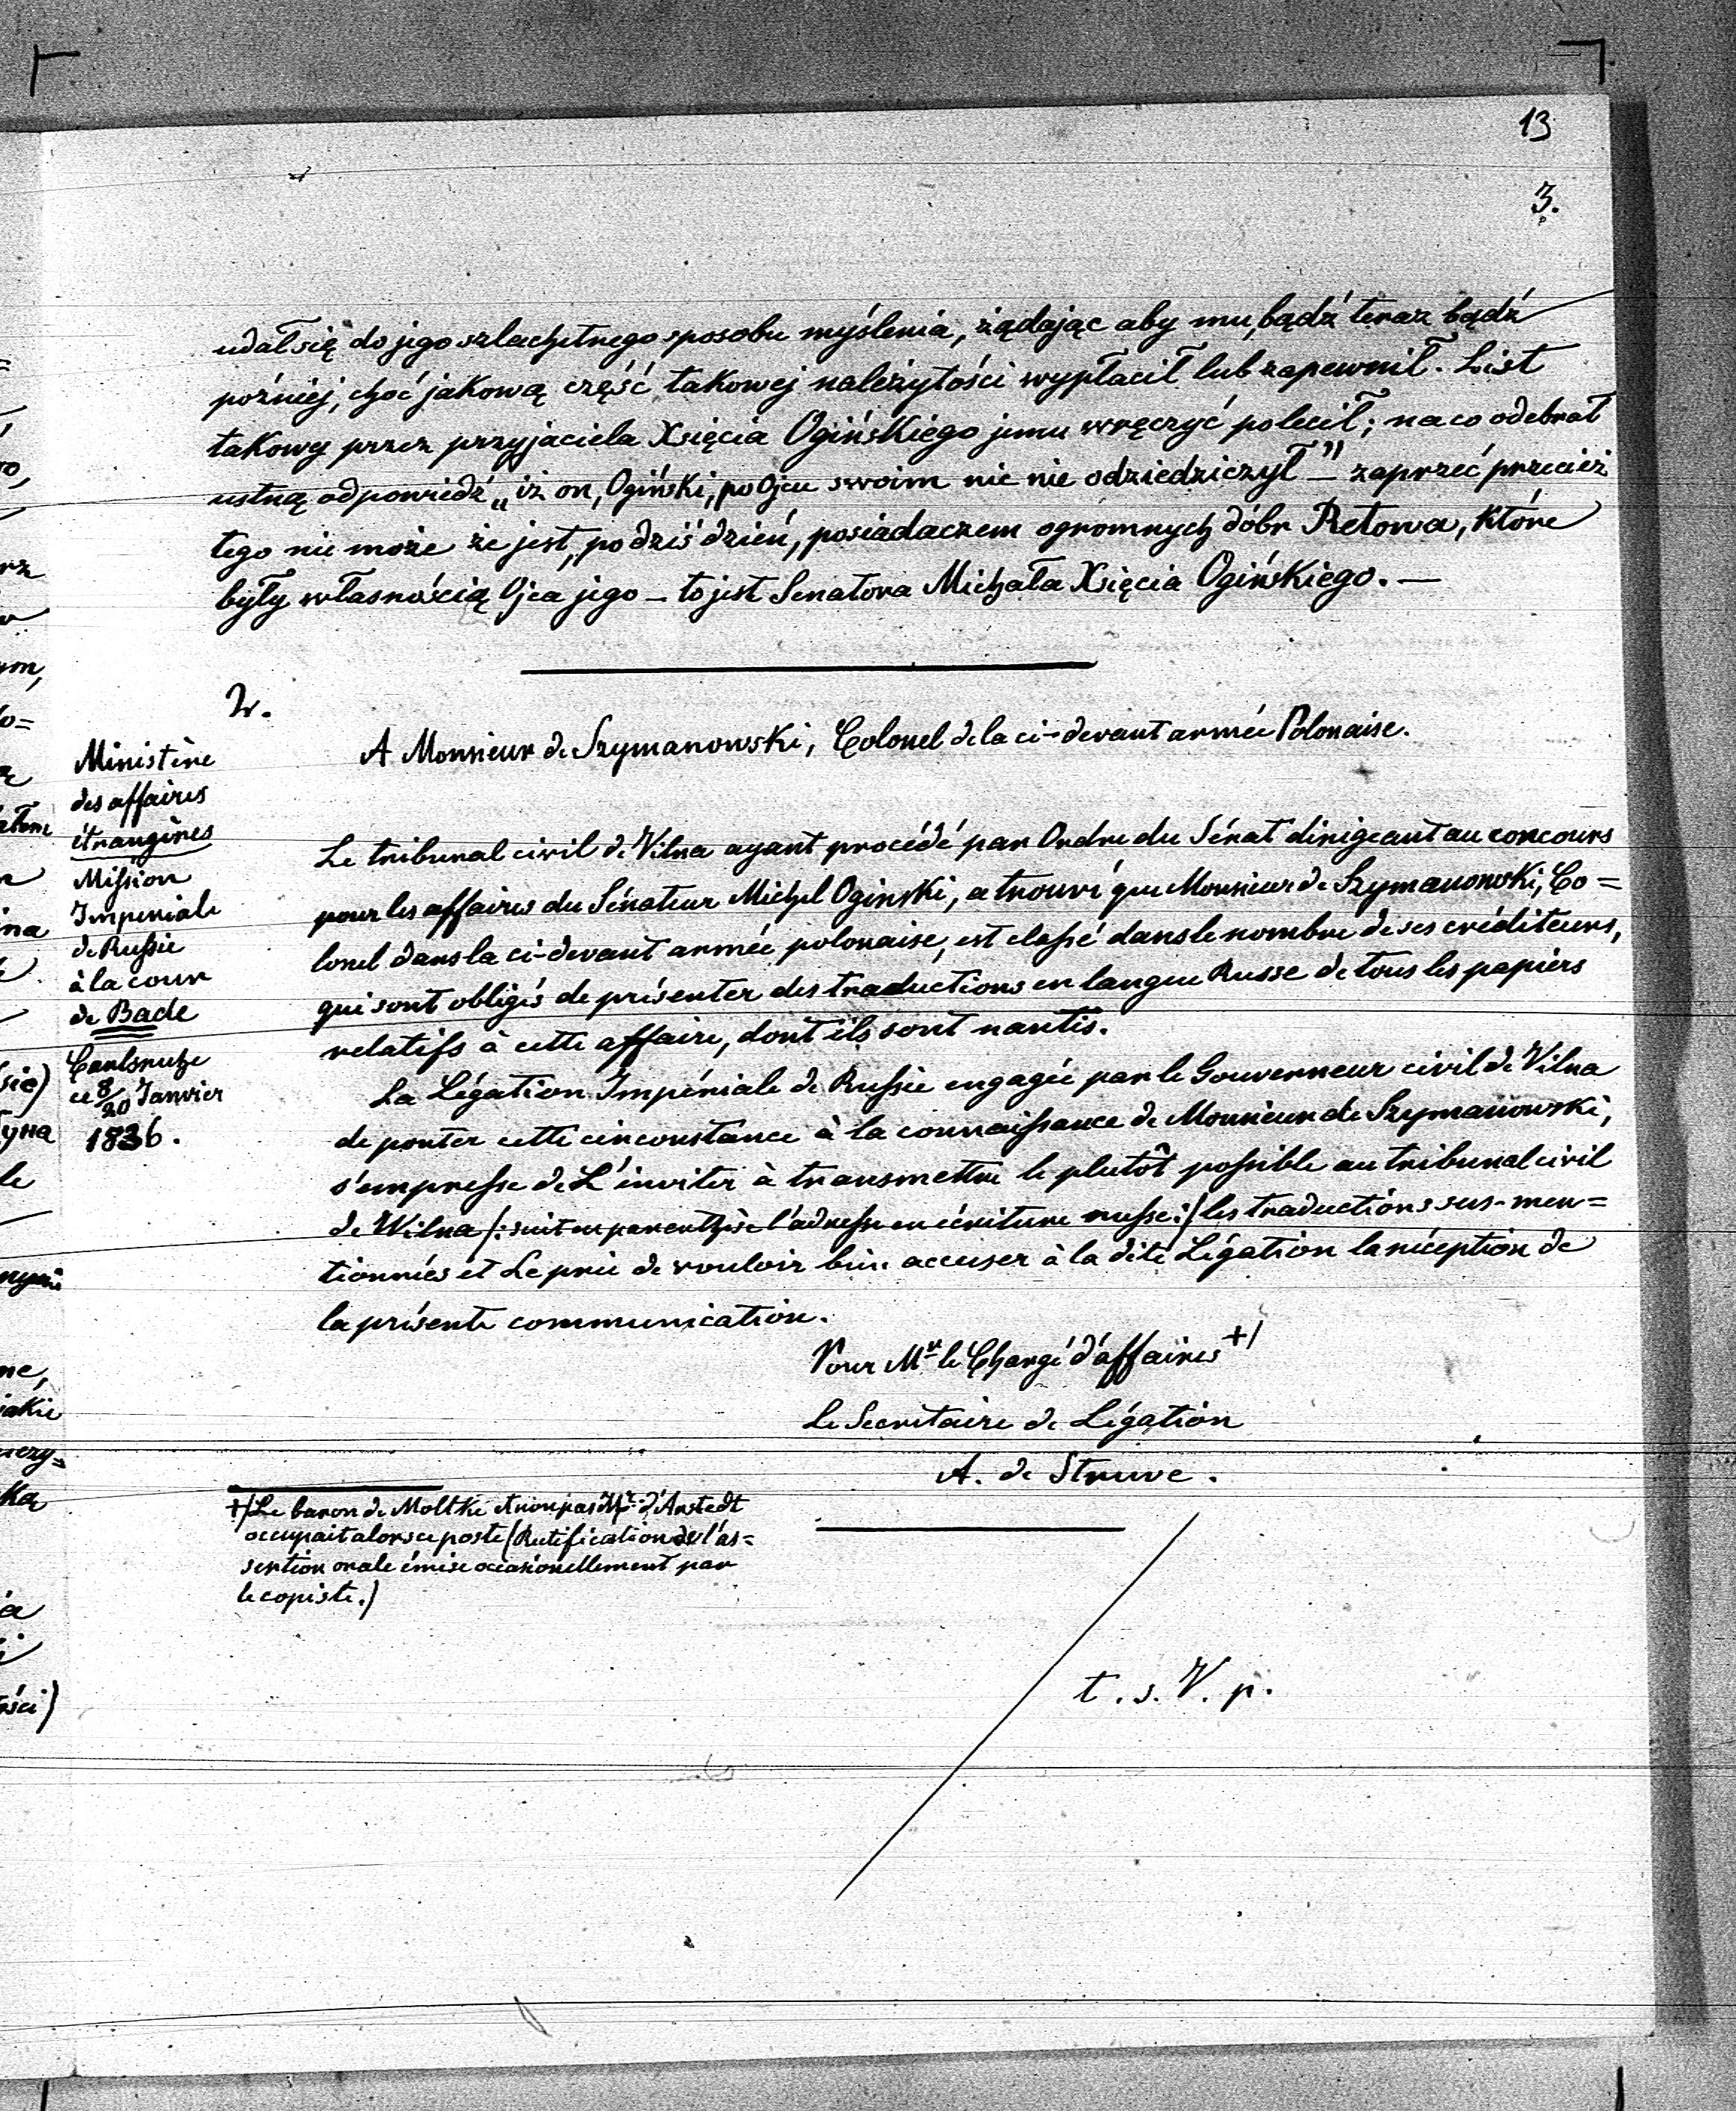 13
3.
udał się do jego szlachetnego sposobu myślenia, żądając aby mu, bądź teraz bądź
później, choć jakową część takowej należytości wypłacił lub zapewnił. List
takowy przez przyjaciela Xsięcia Ogińskiego jemu wręczyć polecił; na co odebrał
ustną odpowiedź „iż on, Ogiński, po Ojcu swoim nic nie odziedziczył —" zaprzeć przecież
tego nie może że jest, po dziś dzień, posiadaczem ogromnych dóbr Retowa, które
były własnością Ojca jego — to jest Senatora Michała Xsięcia Ogińskiego. —
2.
A Monsieur de Szymanowski, Colonel de la ci-devant armée Polonaise.
Ministère
des affaires
étrangères
Mission
Imperiale
de Russie
à la cour
de Bade
Carlsruhe
ce 8/20 Janvier
1836.
Le tribunal civil de Vilna ayant procédé par Ordre du Sénat dirigeant au concours
pour les affaires du Sénateur Michel Oginski, a trouvé que Monsieur de Szymanowski, Co=
lonel dans la ci-devant armée polonaise, est classé dans le nombre de ses créditeurs,
qui sont obligés de présenter des traductions en langue Russe de tous les papiers
relatifs à cette affaire, dont ils sont nantis.
La Légation Impériale de Russie engagée par le Gouverneur civil de Vilna
de porter cette circonstance à la connaissance de Monsieur de Szymanowski,
s'empresse de L'inviter à transmettre le plutôt possible au tribunal civil
de Wilna /: suit en parenthèse l'adresse en écriture russe :/ les traductions sus-men=
tionnées et Le prie de vouloir bien accuser à la dite Légation la réception de
la présente communication.
Pour Mr le Chargé d'affaires +/
Le Secrétaire de Légation
A. de Struve.
+/ Le baron de Moltke et non pas Mr. d'Anstedt
occupait alors ce poste (Rectification de l'as=
sertion orale émise occasionellement par
le copiste.)
t. s. V. p.